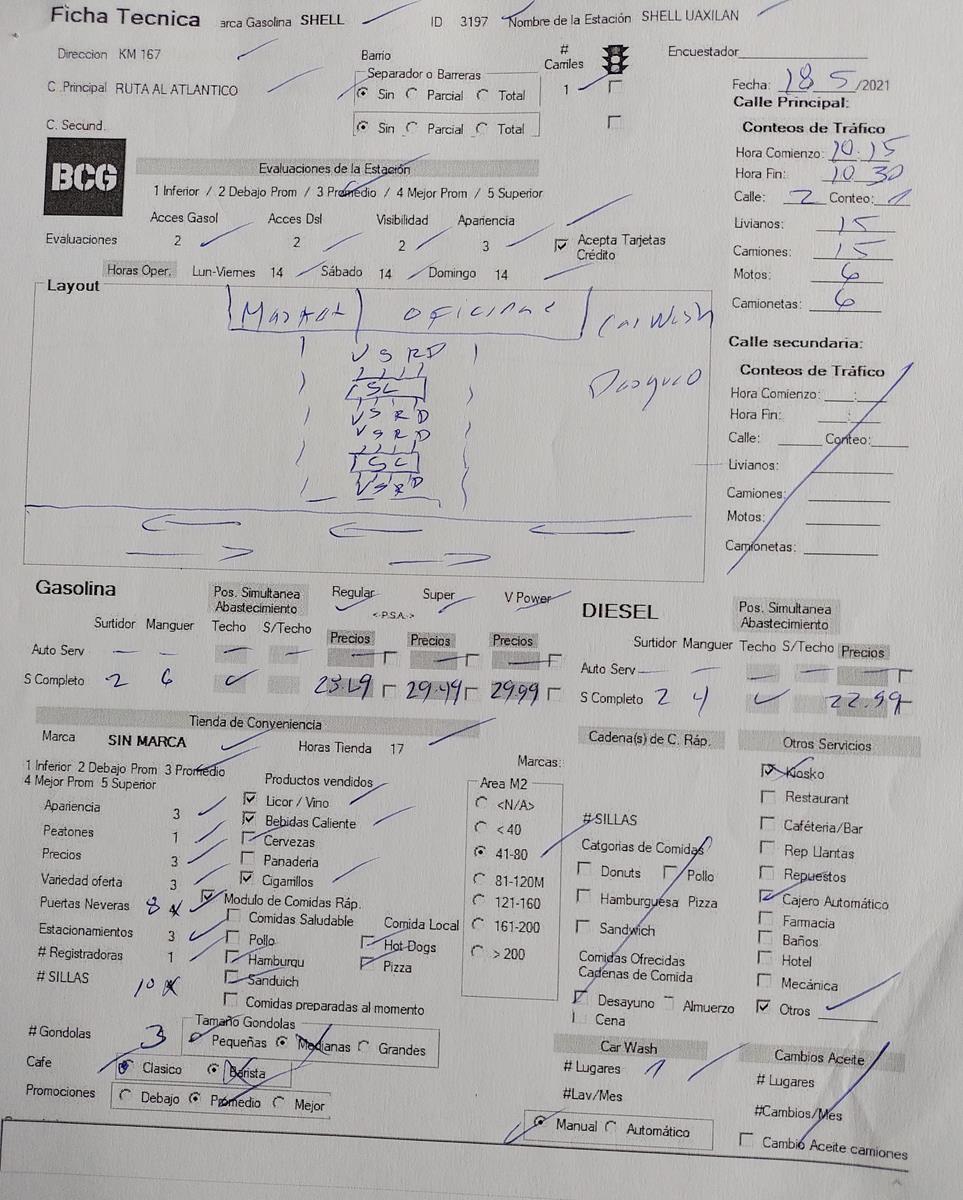 Ficha Tecnica arca Gasolina SHELL ID 3197 Nombre de la Estación SHELL UAXILAN
Direccion KM 167 Barrio # Carriles Encuestador
Separador o Barreras
C .Principal RUTA AL ATLANTICO Sin Parcial Total 1 Fecha: 18 5 /2021
Calle Principal:
C. Secund. Sin Parcial Total
Conteos de Tráfico
BCG
Evaluaciones de la Estación
Hora Comienzo: 10:15
1 Inferior / 2 Debajo Prom / 3 Promedio / 4 Mejor Prom / 5 Superior
Hora Fin: 10 30
Calle: 2 Conteo: 1
Acces Gasol Acces Dsl Visibilidad Apariencia
Livianos: 15
Evaluaciones 2 2 2 3 Acepta Tarjetas Crédito
Camiones: 15
Horas Oper. Lun-Viernes 14 Sábado 14 Domingo 14
Motos: 6
Camionetas: 6
Layout
Market oficina Car Wash
V S R D
SC
V S R D
V S R D
SC
V S R D
Calle secundaria:
Conteos de Tráfico
Hora Comienzo: :
Hora Fin: :
Calle: Conteo:
Livianos:
Camiones:
Motos:
Camionetas:
Gasolina Pos. Simultanea Abastecimiento Regular Super V Power
<-P.S.A.->
Surtidor Manguer Techo S/Techo Precios Precios Precios
Auto Serv — — — — — — —
S Completo 2 6 29.49 29.99
DIESEL Pos. Simultanea Abastecimiento
Surtidor Manguer Techo S/Techo Precios
Auto Serv — — — — —
S Completo 2 4 22.99
Tienda de Conveniencia
Marca SIN MARCA Horas Tienda 17
1 Inferior 2 Debajo Prom 3 Promedio
4 Mejor Prom 5 Superior
Apariencia 3
Peatones 1
Precios 3
Variedad oferta 3
Puertas Neveras 8
Estacionamientos 3
# Registradoras 1
# SILLAS 10
# Gondolas 3
Productos vendidos
Licor / Vino
Bebidas Caliente
Cervezas
Panaderia
Cigarrillos
Modulo de Comidas Ráp.
Comidas Saludable Comida Local
Pollo Hot Dogs
Hamburqu Pizza
Sanduich
Comidas preparadas al momento
Tamaño Gondolas
Pequeñas Medianas Grandes
Cafe Clasico Barista
Promociones Debajo Promedio Mejor
Marcas:
Area M2
<N/A>
< 40
41-80
81-120M
121-160
161-200
> 200
Cadena(s) de C. Ráp.
# SILLAS
Catgorias de Comidas
Donuts Pollo
Hamburguesa Pizza
Sandwich
Comidas Ofrecidas
Cadenas de Comida
Desayuno Almuerzo
Cena
Otros Servicios
Kiosko
Restaurant
Caféteria/Bar
Rep Llantas
Repuestos
Cajero Automático
Farmacia
Baños
Hotel
Mecánica
Otros
Car Wash
# Lugares 1
#Lav/Mes
Manual Automático
Cambios Aceite
# Lugares
#Cambios/Mes
Cambio Aceite camiones